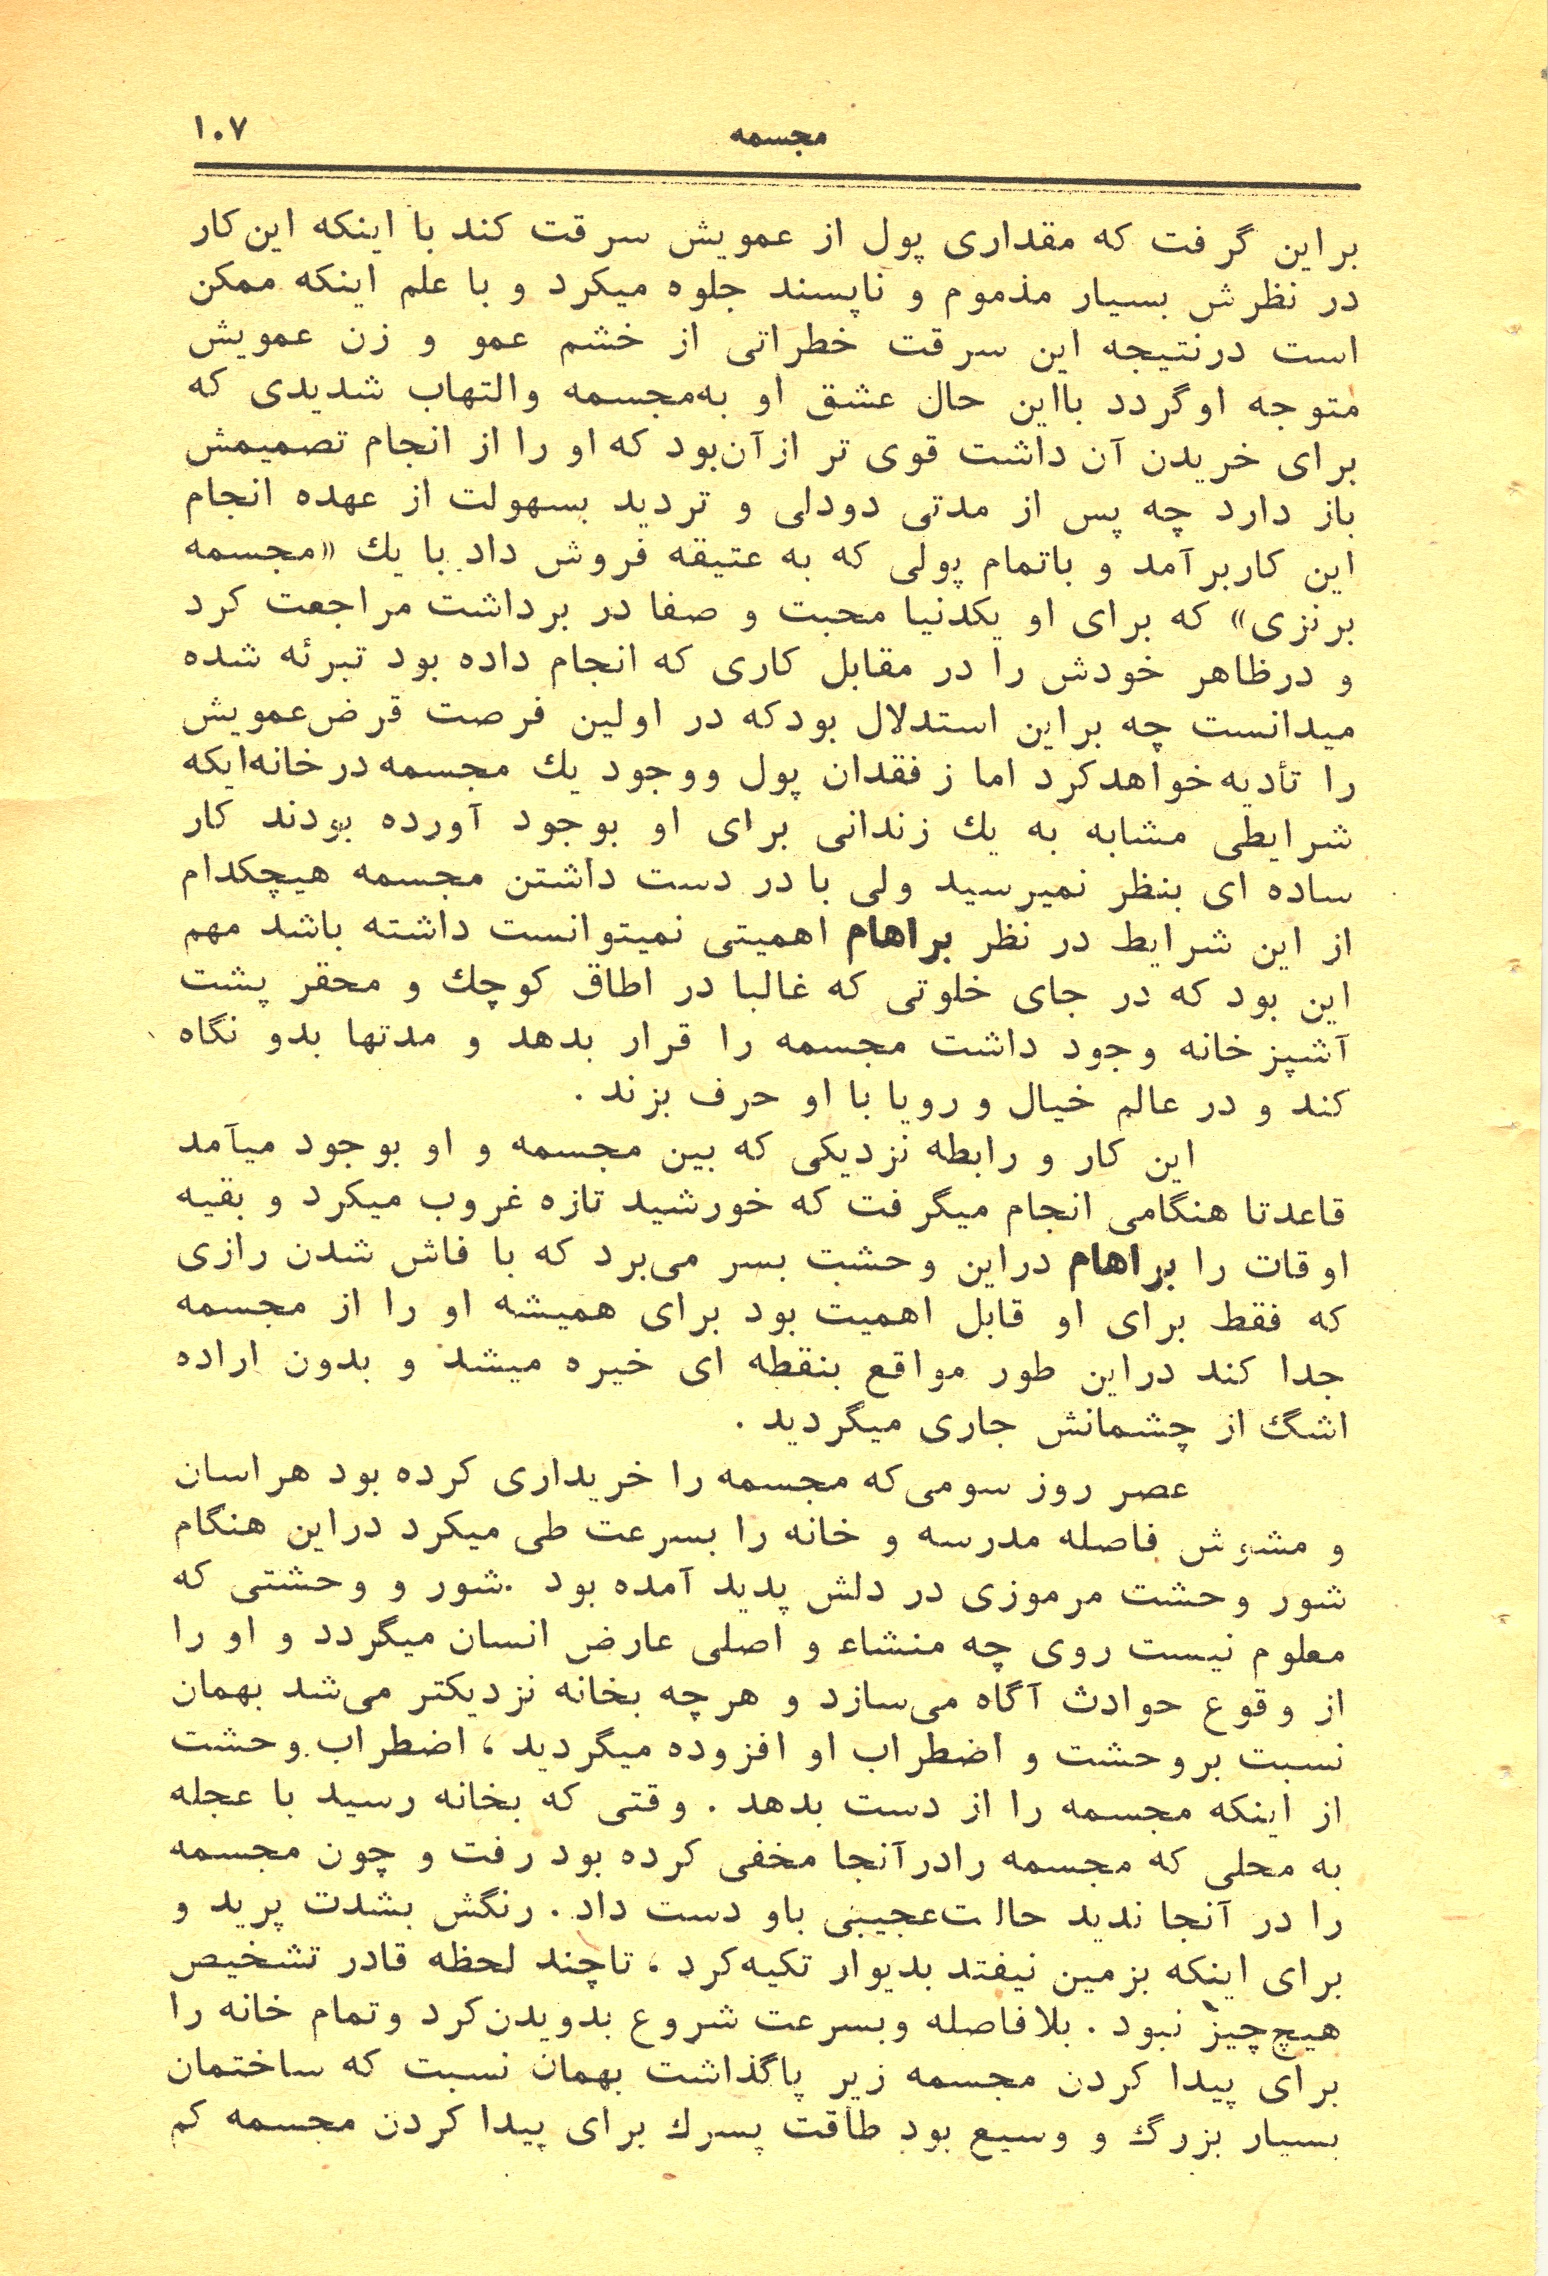 مجسمه
۱۰۷
براین گرفت که مقداری پول از عمویش سرقت کند با اینکه این‌کار
در نظرش بسیار مذموم و ناپسند جلوه میکرد و با علم اینکه ممکن
است درنتیجه این سرقت خطراتی از خشم عمو و زن عمویش
متوجه اوگردد بااین حال عشق او به‌مجسمه والتهاب شدیدی که
برای خریدن آن داشت قوی تر ازآن‌بود که او را از انجام تصمیمش
باز دارد چه پس از مدتی دودلی و تردید بسهولت از عهده انجام
این کاربرآمد و باتمام پولی که به عتیقه فروش داد با یك «مجسمه
برنزی» که برای او یکدنیا محبت و صفا در برداشت مراجعت کرد
و درظاهر خودش را در مقابل کاری که انجام داده بود تبرئه شده
میدانست چه براین استدلال بودکه در اولین فرصت قرض‌عمویش
را تأدیه‌خواهدکرد اما ز فقدان پول ووجود یك مجسمه‌درخانه‌ایکه
شرایطی مشابه به یك زندانی برای او بوجود آورده بودند کار
ساده ای بنظر نمیرسید ولی با در دست داشتن مجسمه هیچکدام
از این شرایط در نظر براهام اهمیتی نمیتوانست داشته باشد مهم
این بود که در جای خلوتی که غالبا در اطاق کوچك و محقر پشت
آشپزخانه وجود داشت مجسمه را قرار بدهد و مدتها بدو نگاه
کند و در عالم خیال و رویا با او حرف بزند .
این کار و رابطه نزدیکی که بین مجسمه و او بوجود میآمد
قاعدتا هنگامی انجام میگرفت که خورشید تازه غروب میکرد و بقیه
اوقات را براهام دراین وحشت بسر می‌برد که با فاش شدن رازی
که فقط برای او قابل اهمیت بود برای همیشه او را از مجسمه
جدا کند دراین طور مواقع بنقطه ای خیره میشد و بدون اراده
اشگ از چشمانش جاری میگردید .
عصر روز سومی‌که مجسمه را خریداری کرده بود هراسان
و مشوش فاصله مدرسه و خانه را بسرعت طی میکرد دراین هنگام
شور وحشت مرموزی در دلش پدید آمده بود .شور و وحشتی که
معلوم نیست روی چه منشاء و اصلی عارض انسان میگردد و او را
از وقوع حوادث آگاه می‌سازد و هرچه بخانه نزدیکتر می‌شد بهمان
نسبت بروحشت و اضطراب او افزوده میگردید ، اضطراب وحشت
از اینکه مجسمه را از دست بدهد . وقتی که بخانه رسید با عجله
به محلی که مجسمه رادرآنجا مخفی کرده بود رفت و چون مجسمه
را در آنجا ندید حالت‌عجیبی باو دست داد . رنگش بشدت پرید و
برای اینکه بزمین نیفتد بدیوار تکیه‌کرد ، تاچند لحظه قادر تشخیص
هیچ‌چیز نبود . بلافاصله وبسرعت شروع بدویدن‌کرد وتمام خانه را
برای پیدا کردن مجسمه زیر پاگذاشت بهمان نسبت که ساختمان
بسیار بزرگ و وسیع بود طاقت پسرك برای پیدا کردن مجسمه کم